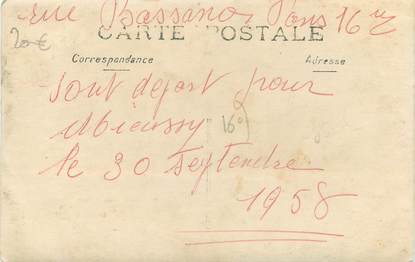 rue Bassano, Paris 16
20€
CARTE POSTALE
Correspondance Adresse
sont départ pour
16°
le 30 Septendre
1958